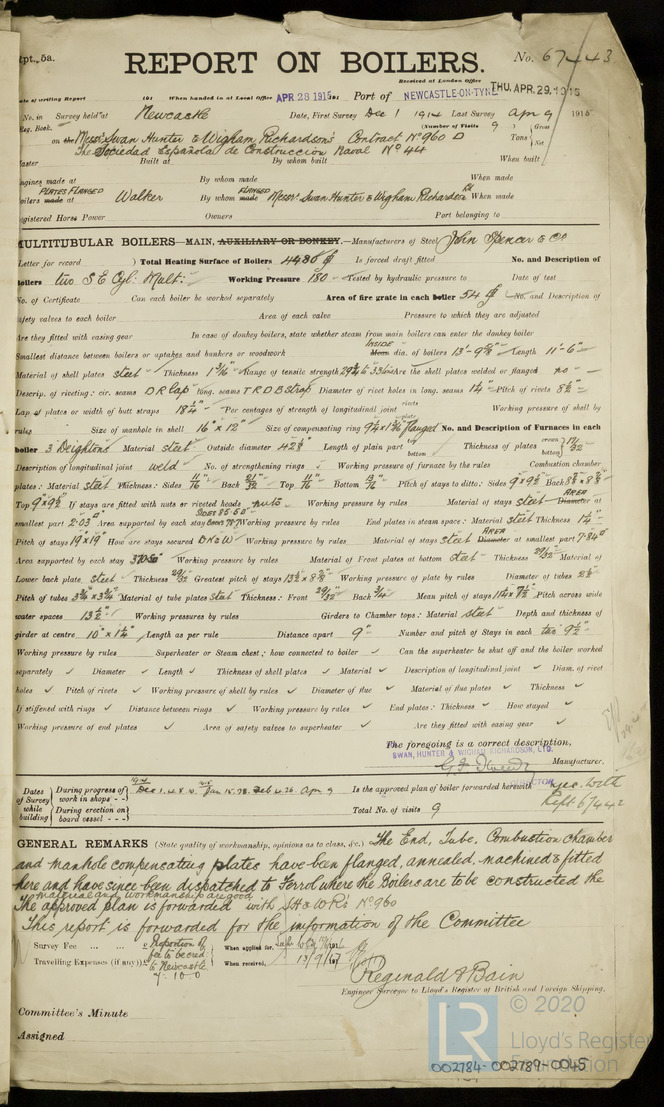 Rpt. 5a.
REPORT ON BOILERS.
No. 67443
Received at London Office
Date of writing Report 191 When handed in at Local Office APR 28 1915 191 Port of NEWCASTLE-ON-TYNE THU. APR. 29. 1915
No. in Survey held at Newcastle Date, First Survey Dec 1 1914 Last Survey Apr 9 1915
Reg. Book. (Number of Visits 9) Gross
on the Messrs Swan Hunter & Wigham Richardson's Contract No 960 D Tons Net
The Sociedad Española de Construccion Naval No 44
Master Built at By whom built When built
Engines made at By whom made When made
PLATES FLANGED FLANGED
Boilers made at Walker By whom made Messrs Swan Hunter & Wigham Richardson Ld When made
Registered Horse Power Owners Port belonging to
MULTITUBULAR BOILERS—MAIN, AUXILIARY OR DONKEY.—Manufacturers of Steel John Spencer & Co
(Letter for record ) Total Heating Surface of Boilers 4486 Is forced draft fitted No. and Description of
Boilers two S E Cyl: Mult: Working Pressure 180 Tested by hydraulic pressure to Date of test
No. of Certificate Can each boiler be worked separately Area of fire grate in each boiler 54 No. and Description of
safety valves to each boiler Area of each valve Pressure to which they are adjusted
Are they fitted with easing gear In case of donkey boilers, state whether steam from main boilers can enter the donkey boiler
INSIDE
Smallest distance between boilers or uptakes and bunkers or woodwork Mean dia. of boilers 13'-9 5/8" Length 11'-6"
Material of shell plates steel Thickness 1 3/16" Range of tensile strength Are the shell plates welded or flanged no
Descrip. of riveting: cir. seams D R Lap long. seams T R D B Strap Diameter of rivet holes in long. seams 1 1/4" Pitch of rivets 8 1/2"
Lap of plates or width of butt straps 18 1/4" Per centages of strength of longitudinal joint rivets plate Working pressure of shell by
rules Size of manhole in shell 16" x 12" Size of compensating ring flanged No. and Description of Furnaces in each
boiler 3 Deightons Material steel Outside diameter 42 1/2" Length of plain part top bottom Thickness of plates crown bottom 17/32"
Description of longitudinal joint weld No. of strengthening rings Working pressure of furnace by the rules Combustion chamber
plates: Material steel Thickness: Sides 11/16" Back 21/32" Top 11/16" Bottom 13/16" Pitch of stays to ditto: Sides 9" x 9 1/2" Back
Top 9" x 9 1/2" If stays are fitted with nuts or riveted heads nuts Working pressure by rules Material of stays steel AREA Diameter at
smallest part 2.03 Area supported by each stay Working pressure by rules End plates in steam space: Material steel Thickness 1 1/4"
Pitch of stays 19" x 19" How are stays secured D N & W Working pressure by rules Material of stays steel AREA Diameter at smallest part 7.24
Area supported by each stay Working pressure by rules Material of Front plates at bottom steel Thickness 29/32" Material of
Lower back plate steel Thickness 29/32" Greatest pitch of stays Working pressure of plate by rules Diameter of tubes 2 1/2"
Pitch of tubes 3 3/4" x 3 3/4" Material of tube plates steel Thickness: Front 29/32" Back 3/4" Mean pitch of stays Pitch across wide
water spaces 13 1/2" Working pressures by rules Girders to Chamber tops: Material steel Depth and thickness of
girder at centre 10" x 1 1/4" Length as per rule Distance apart 9" Number and pitch of Stays in each two 9 1/2"
Working pressure by rules Superheater or Steam chest; how connected to boiler Can the superheater be shut off and the boiler worked
separately Diameter Length Thickness of shell plates Material Description of longitudinal joint Diam. of rivet
holes Pitch of rivets Working pressure of shell by rules Diameter of flue Material of flue plates Thickness
If stiffened with rings Distance between rings Working pressure by rules End plates: Thickness How stayed
Working pressure of end plates Area of safety valves to superheater Are they fitted with easing gear
The foregoing is a correct description,
SWAN, HUNTER & WIGHAM RICHARDSON, LTD.
Manufacturer.
DIRECTOR
Dates of Survey while building During progress of work in shops - - 1914 Dec 1. 4. 8. 10. 1915 Jan 15. 28. Feb 4. 26. Apr 9 Is the approved plan of boiler forwarded herewith Yes. With Rept 67442
During erection on board vessel - - - Total No. of visits 9
GENERAL REMARKS (State quality of workmanship, opinions as to class, &c.) The End, Tube, Combustion chamber
and manhole compensating plates have been flanged, annealed, machined & fitted
here and have since been dispatched to Ferrol where the Boilers are to be constructed the
material and workmanship are good
The approved plan is forwarded with SH & WR's No 960
This report is forwarded for the information of the Committee
Survey Fee ... ... £ Proportion of fee to be cred to Newcastle When applied for,
Travelling Expenses (if any) £ 7:10:0 When received, 13/9/17
Reginald J Bain
Engineer Surveyor to Lloyd's Register of British and Foreign Shipping.
Committee's Minute
Assigned
LR
© 2020
Lloyd's Register
Foundation
002784-002789-0045